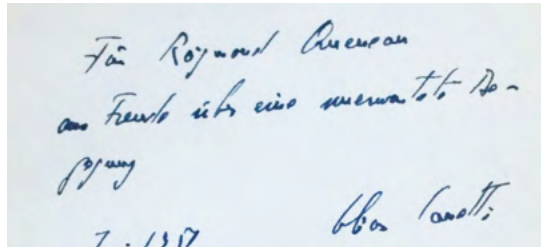 Für Raymond Queneau
aus Freude über eine unerwartete Be-
gegnung
Elias Canetti